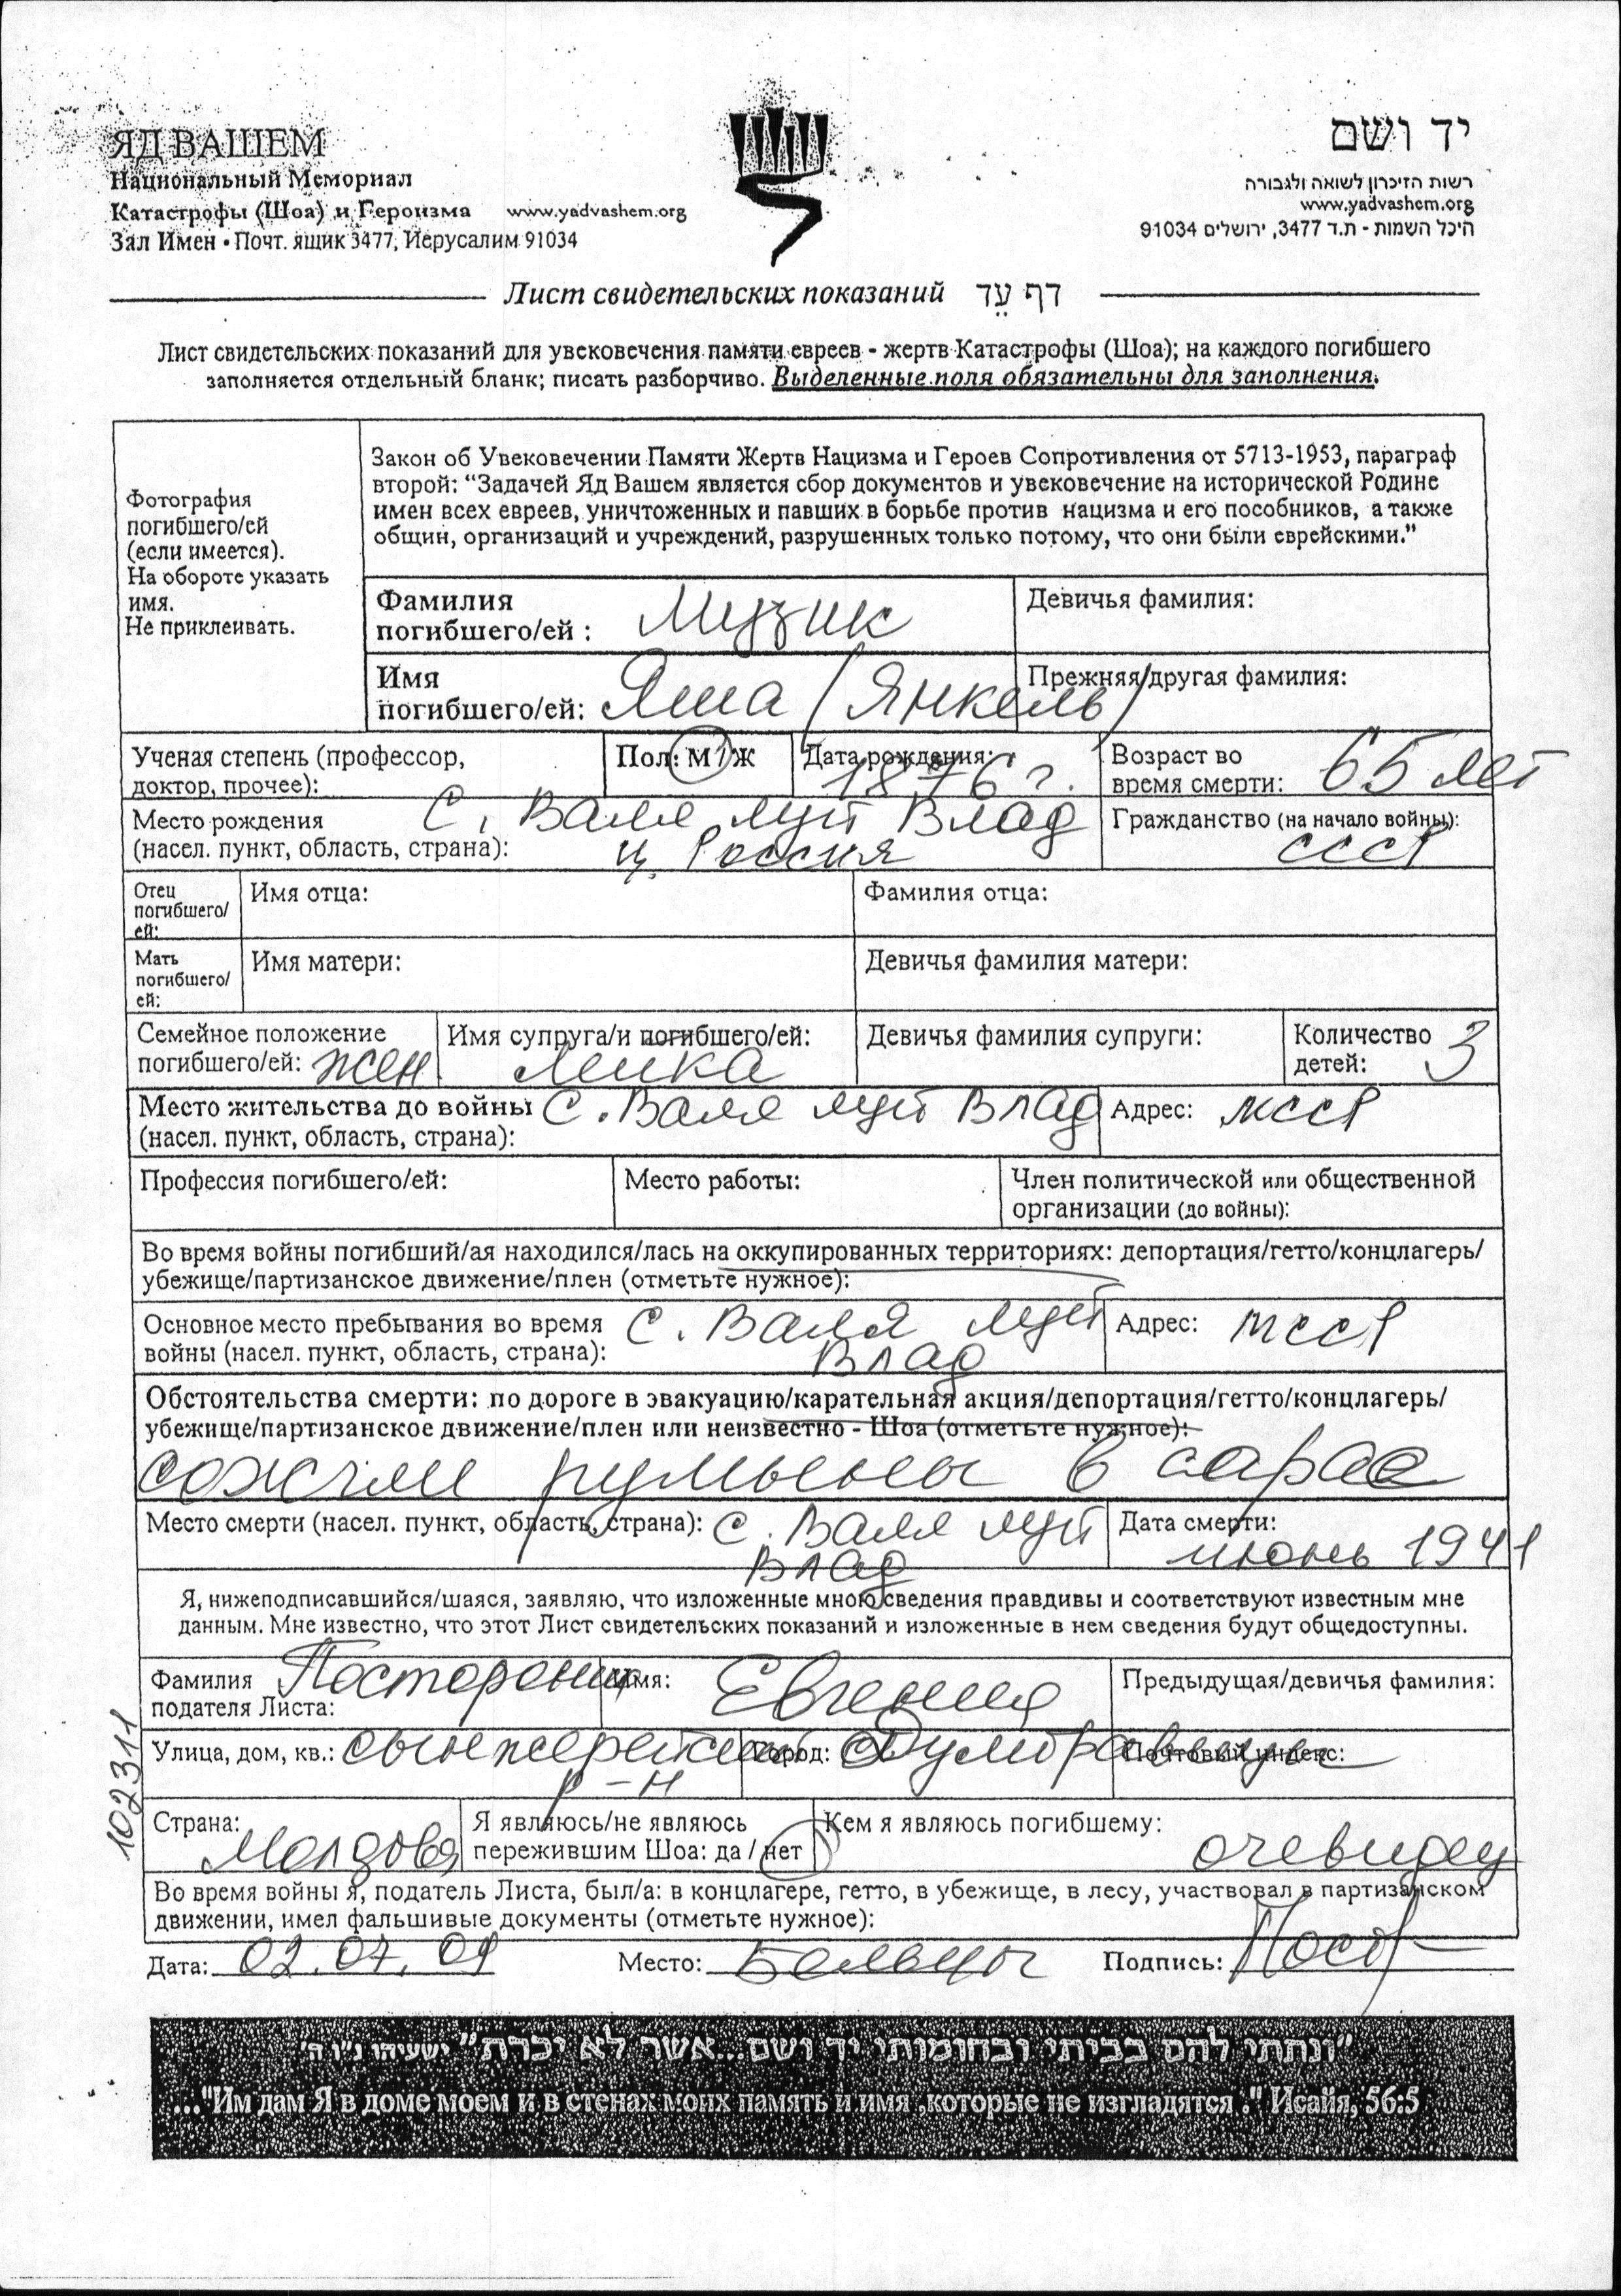 ЯД ВАШЕМ
Национальный Мемориал
Катастрофы (Шоа) и Героизма www.yadvashem.org
Зал Имен • Почт. ящик 3477, Иерусалим 91034
יד ושם
רשות הזיכרון לשואה ולגבורה
www.yadvashem.org
היכל השמות - ת.ד 3477, ירושלים 91034
Лист свидетельских показаний דף עֵד
Лист свидетельских показаний для увековечения памяти евреев - жертв Катастрофы (Шоа); на каждого погибшего
заполняется отдельный бланк; писать разборчиво. Выделенные поля обязательны для заполнения.
Фотография
погибшего/ей
(если имеется).
На обороте указать
имя.
Не приклеивать.
Закон об Увековечении Памяти Жертв Нацизма и Героев Сопротивления от 5713-1953, параграф
второй: “Задачей Яд Вашем является сбор документов и увековечение на исторической Родине
имен всех евреев, уничтоженных и павших в борьбе против нацизма и его пособников, а также
общин, организаций и учреждений, разрушенных только потому, что они были еврейскими.”
Фамилия
погибшего/ей : Музик
Девичья фамилия:
Имя
погибшего/ей: Яша (Янкель)
Прежняя/другая фамилия:
Ученая степень (профессор,
доктор, прочее):
Пол: М / Ж
Дата рождения: 1876 г.
Возраст во
время смерти: 65 лет
Место рождения
(насел. пункт, область, страна): с. Валя луй Влад
ц. Россия
Гражданство (на начало войны):
СССР
Отец
погибшего/
ей:
Имя отца:
Фамилия отца:
Мать
погибшего/
ей:
Имя матери:
Девичья фамилия матери:
Семейное положение
погибшего/ей: жен
Имя супруга/и погибшего/ей:
Девичья фамилия супруги:
Количество
детей: 3
Место жительства до войны с. Валя луй Влад
(насел. пункт, область, страна):
Адрес: МССР
Профессия погибшего/ей:
Место работы:
Член политической или общественной
организации (до войны):
Во время войны погибший/ая находился/лась на оккупированных территориях: депортация/гетто/концлагерь/
убежище/партизанское движение/плен (отметьте нужное):
Основное место пребывания во время
войны (насел. пункт, область, страна): с. Валя луй
Влад
Адрес: МССР
Обстоятельства смерти: по дороге в эвакуацию/карательная акция/депортация/гетто/концлагерь/
убежище/партизанское движение/плен или неизвестно - Шоа (отметьте нужное):
сожгли румыны в сарае
Место смерти (насел. пункт, область, страна): с. Валя луй
Влад
Дата смерти:
июнь 1941
Я, нижеподписавшийся/шаяся, заявляю, что изложенные мною сведения правдивы и соответствуют известным мне
данным. Мне известно, что этот Лист свидетельских показаний и изложенные в нем сведения будут общедоступны.
Фамилия
подателя Листа:
Имя: Евгения
Предыдущая/девичья фамилия:
Улица, дом, кв.: сынжерейский
р-н
Город: с. Думбравицы
Почтовый индекс:
Страна:
Молдова
Я являюсь/не являюсь
пережившим Шоа: да / нет
Кем я являюсь погибшему:
очевидец
Во время войны я, податель Листа, был/а: в концлагере, гетто, в убежище, в лесу, участвовал в партизанском
движении, имел фальшивые документы (отметьте нужное):
Дата: 02.07.09
Место: Бельцы
Подпись:
102311
"ונתתי להם בביתי ובחומותי יד ושם...אשר לא יכרת" ישעיהו נ"ו ה'
..."Им дам Я в доме моем и в стенах моих память и имя ,которые не изгладятся ." Исайя, 56:5